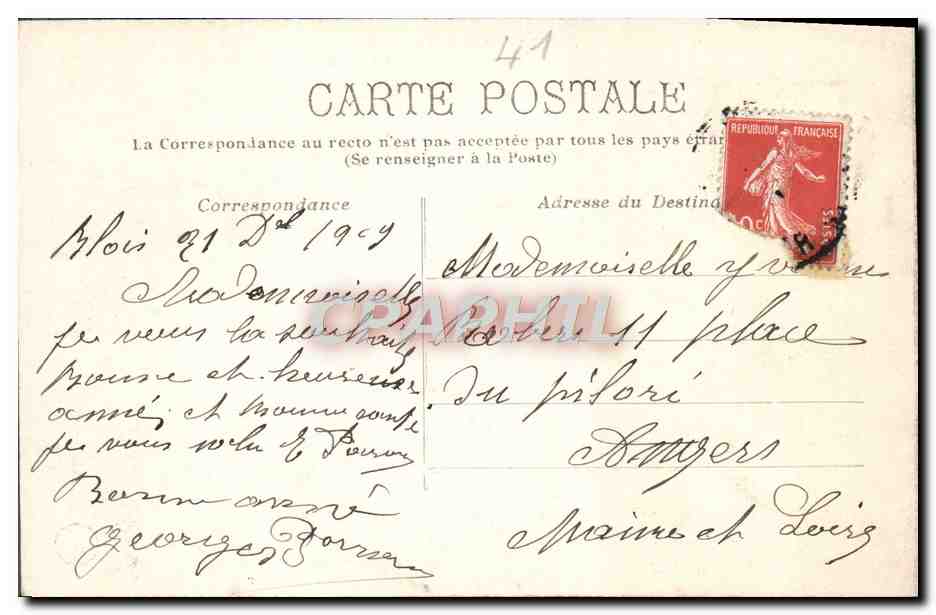 41
CARTE POSTALE
La Correspondance au recto n'est pas acceptée par tous les pays étran
(Se renseigner à la Poste)
Correspondance
Adresse du Destina
REPUBLIQUE FRANÇAISE
10c
POSTES
Blois 21 Dbl 1909
Mademoiselle
je vous la souhaite
Bonne et heureuse
anné et bonne santé
je vous
Bonne anné
Georges
Mademoiselle Yvonne
11 place
du pilori
Angers
Maine et Loire
CPAPHIL